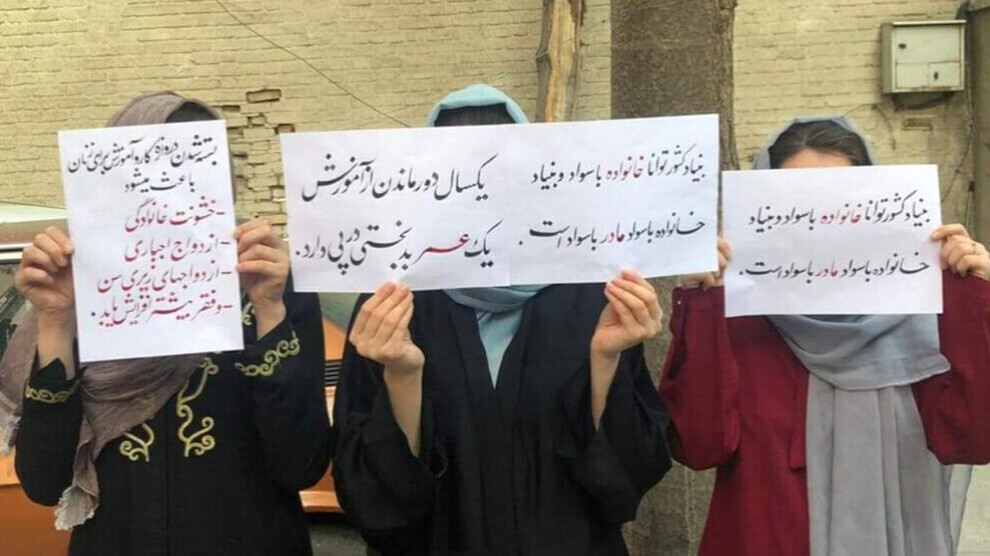 بسته شدن دروازه کار و آموزش برای زنان
باعث میشود
- خشونت خانوادگی
- ازدواج اجباری
- ازدواجهای زیری سن
- و فقر بیشتر افزایش یابد.
یکسال دور ماندن از آموزش
یک عمر بدبختی در پی دارد.
بنیاد کشور توانا خانواده باسواد و بنیاد
خانواده باسواد مادر باسواد است.
بنیاد کشور توانا خانواده باسواد و بنیاد
خانواده باسواد مادر باسواد است.